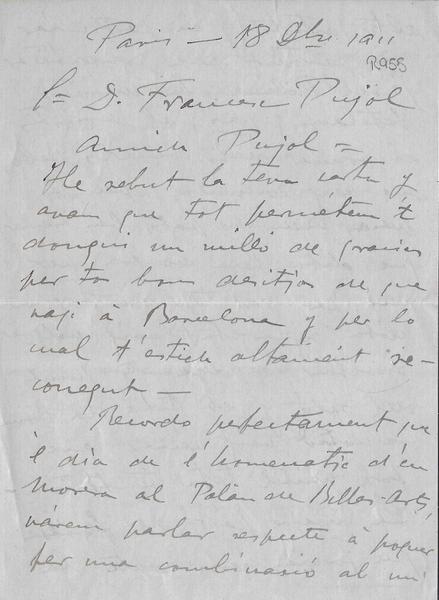 Paris — 18 Dbre 1911
R955
Sr. D. Francesc Pujol
Amich Pujol =
He rebut la teva carta y
avans que tot permétem't
dongui un milló de gracias
per tos bons desitjos de que
vagi à Barcelona y per lo
cual t'estich altament re-
conegut —
Recordo perfectament que
'l dia de l'homenatje d'en
Morera al Palau de Bellas-Arts,
várem parlar respecte à poguer
per una combinasió al mi